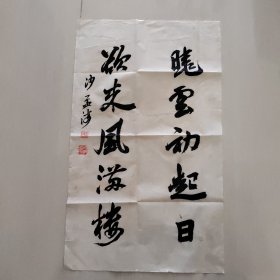 曉雲初起日
欲来風满樓
沙孟海